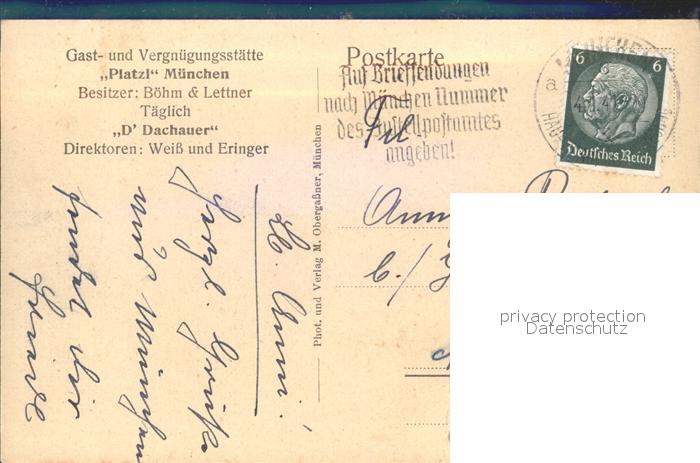 Gast- und Vergnügungsstätte
„Platzl" München
Besitzer: Böhm & Lettner
Täglich
„D' Dachauer"
Direktoren: Weiß und Eringer
Postkarte
Auf Briefsendungen
nach München Nummer
des Zustellpostamtes
angeben!
6 6
Deutsches Reich
Phot. und Verlag M. Obergaßner, München
Frl
Lb. Anni!
Herzl. Grüße
aus München
sendet dir
privacy protection
Datenschutz